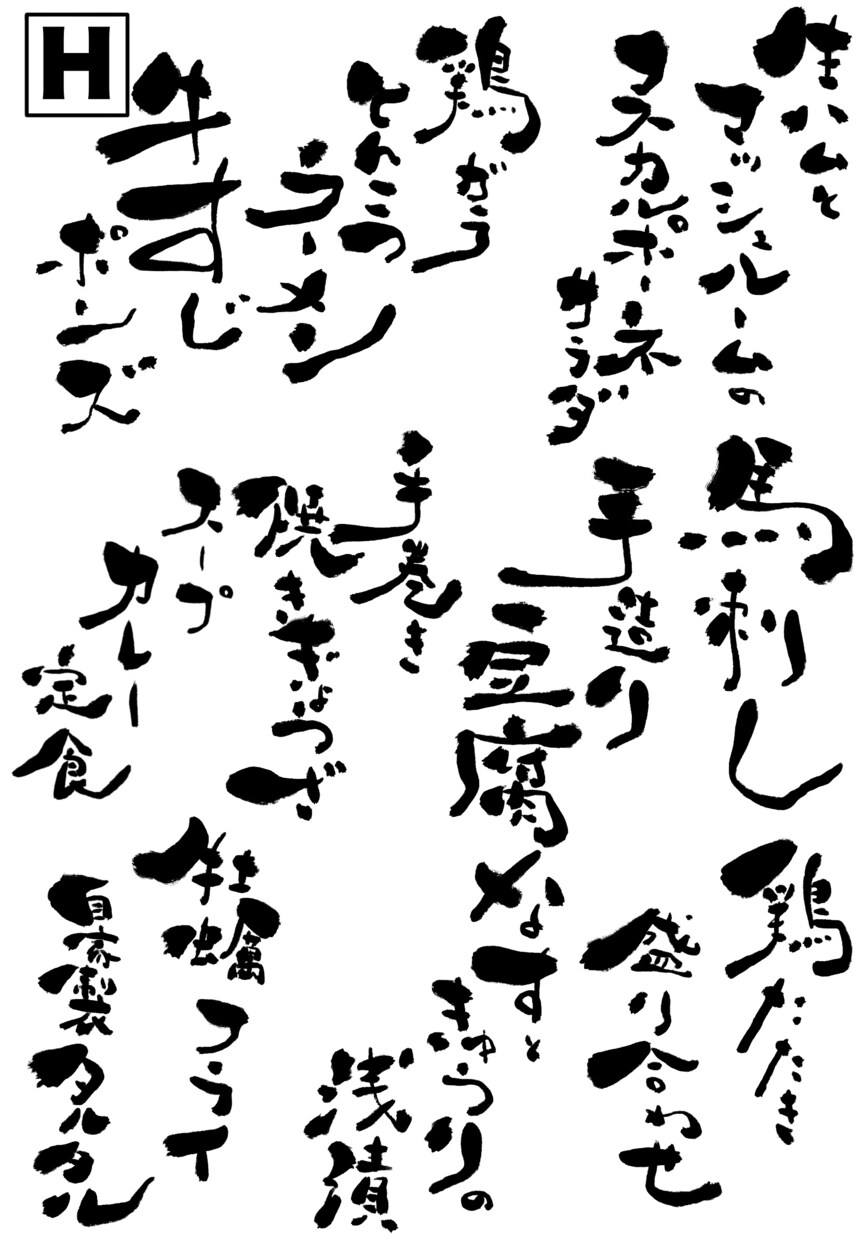 H
生ハムと
マッシュルームの
マスカルポーネ
サラダ
鶏がら
とんこつ
ラーメン
牛すじ
ポンズ
馬刺し
手造り
豆腐
手巻き
焼きぎょうざ
スープ
カレー
定食
鶏たたき
盛り合わせ
なすと
きゅうりの
浅漬
牡蠣フライ
自家製タルタル